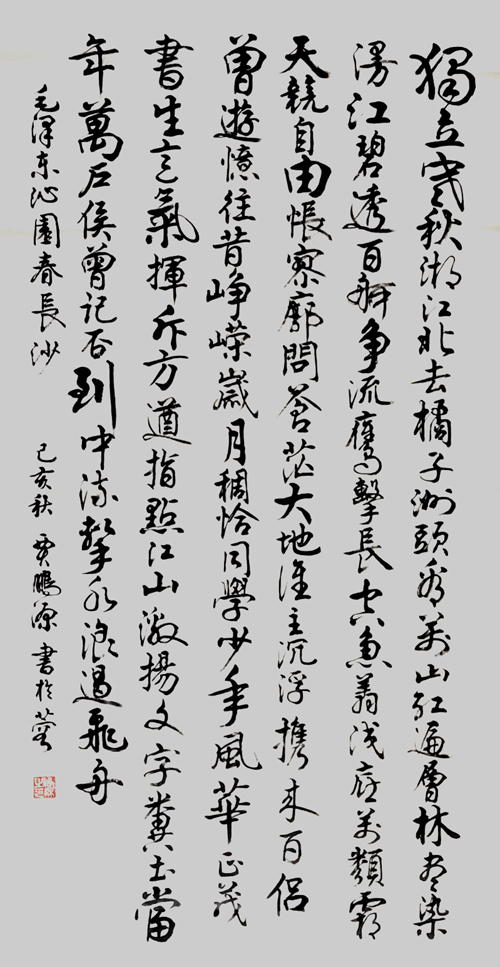 獨立寒秋湘江北去橘子洲頭看萬山紅遍層林盡染
漫江碧透百舸爭流鷹擊長空魚翔淺底萬類霜
天競自由悵寥廓問蒼茫大地誰主沉浮攜來百侶
曾遊憶往昔崢嶸歲月稠恰同學少年風華正茂
書生意氣揮斥方遒指點江山激揚文字糞土當
年萬戶侯曾記否到中流擊水浪遏飛舟
毛澤東沁園春長沙
己亥秋 賈鵬源書於蓉